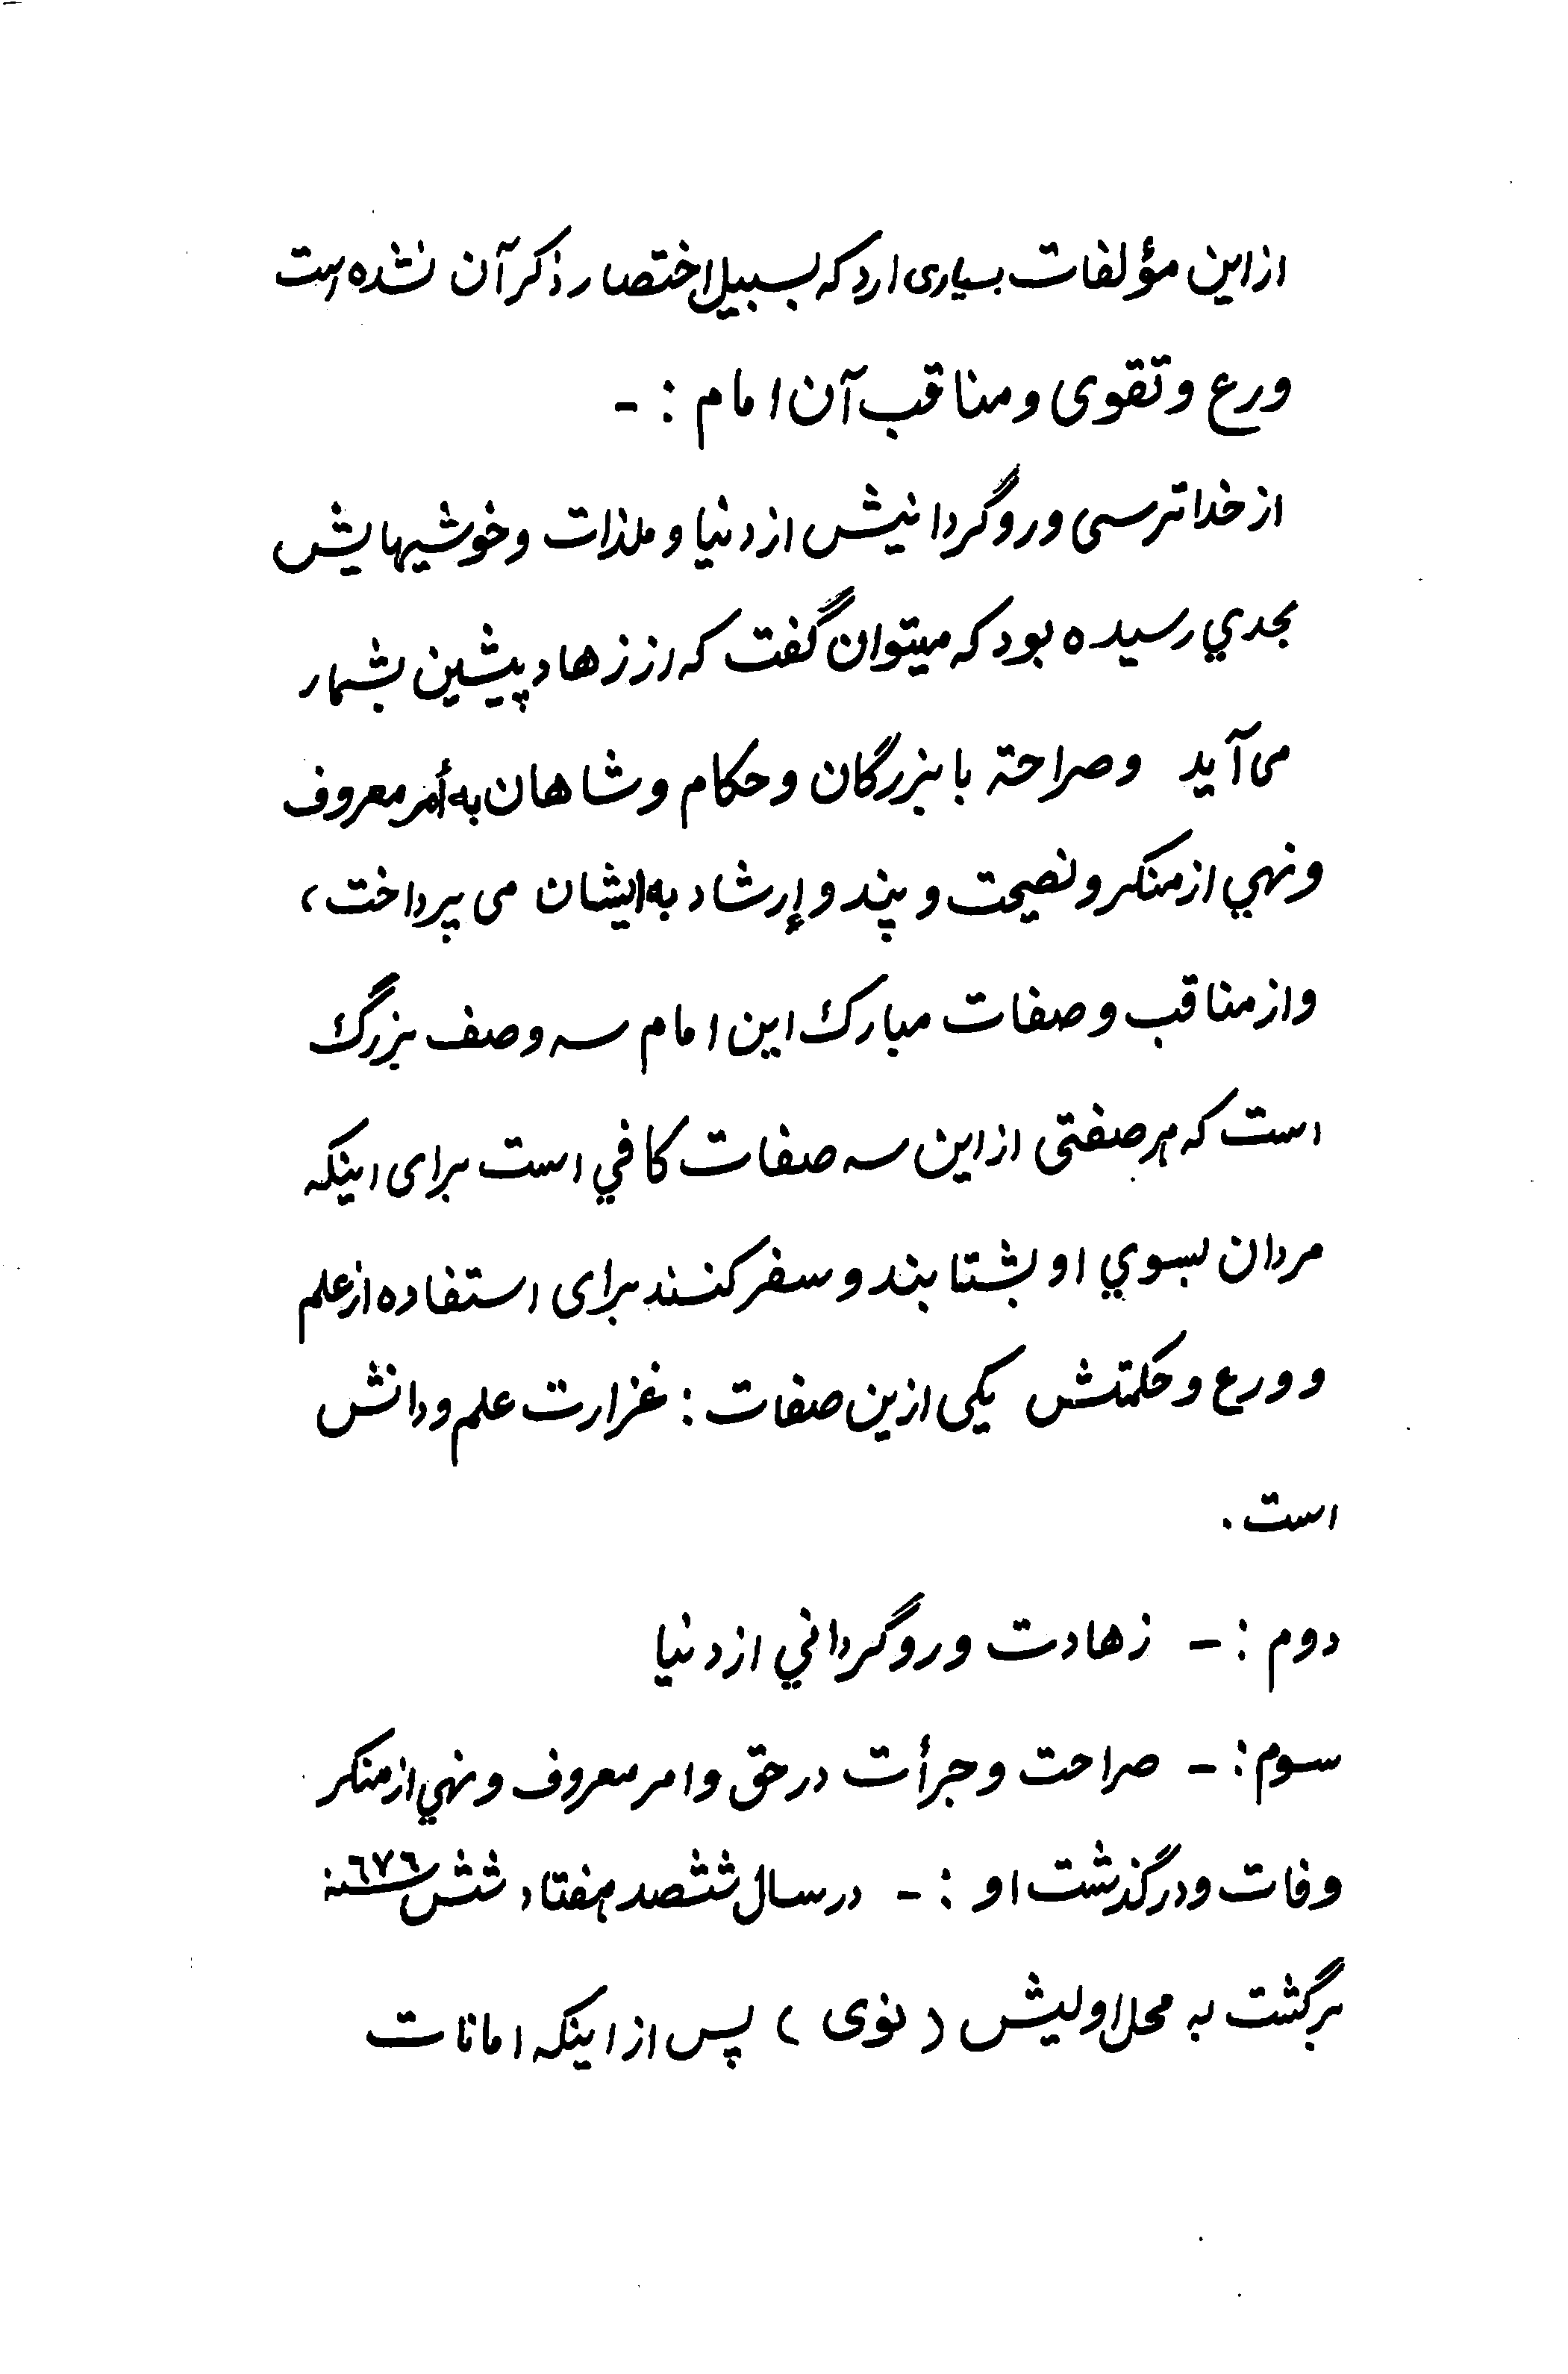 از این مؤلفات بسیاری ارد که بسبیل اختصار ذکر آن نشده است
ورع و تقوی و مناقب آن امام : -
از خدا ترسی و روگردانیش از دنیا و ملذات و خوشیهایش
بحدي رسیده بود که میتوان گفت که از زهاد پیشین بشمار
می آید و صراحة با بزرگان و حکام و شاهان به أمر معروف
و نهي از منکر و نصیحت و پند و إرشاد به ایشان می پرداخت ،
و از مناقب و صفات مبارک این امام سه وصف بزرگ
است که هر صفتی از این سه صفات کافي است برای اینکه
مردان بسوي او بشتابند و سفر کنند برای استفاده از علم
و ورع و حکمتش یکی ازین صفات : غزارت علم و دانش
است .
دوم : - زهادت و روگرداني از دنیا
سوم : - صراحت و جرأت در حق و امر معروف و نهي از منکر
وفات و درگذشت او : - در سال ششصد هفتاد شش ٦٧٦ سنه
برگشت به محل اولیش ( نوی ) پس از اینکه امانات